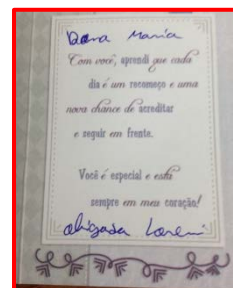 Dona Maria
Com você, aprendi que cada
dia é um recomeço e uma
nova chance de acreditar
e seguir em frente.
Você é especial e está
sempre em meu coração!
obrigada